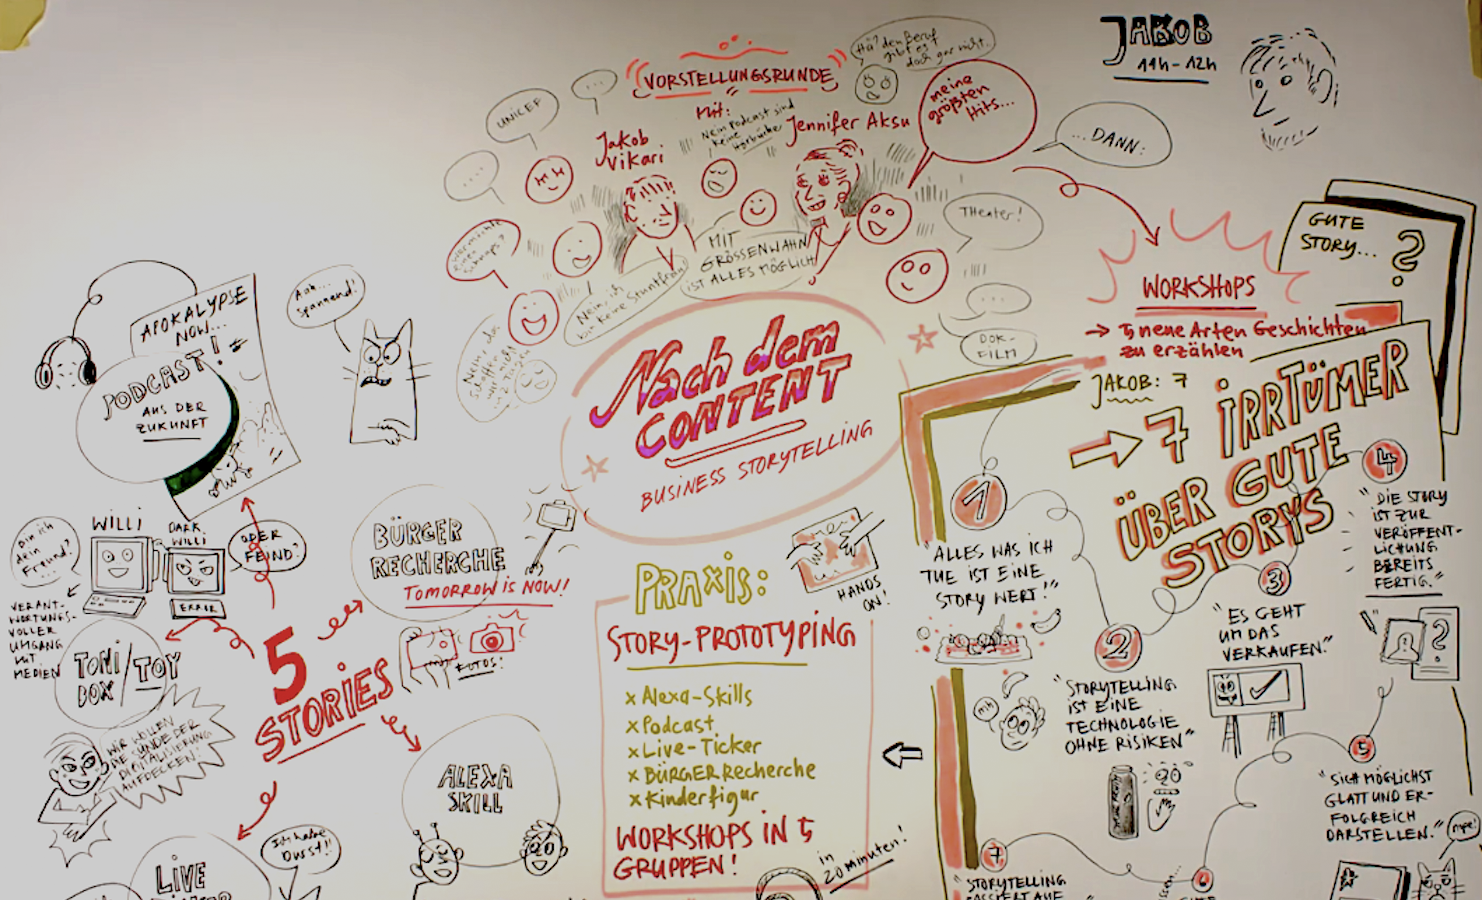 JAKOB
11h-12h
VORSTELLUNGSRUNDE
Mit:
Jakob
Vikari
Jennifer Aksu
Nein Podcast sind
keine
Hörbücher
Hä? den Beruf
gibt es
doch gar nicht.
meine
größten
Hits...
...DANN:
UNICEF
...
....
Theater!
...
DOK-
FILM
MIT
GRÖSSENWAHN
IST ALLES MÖGLICH
Nein, ich
bin keine Stuntfrau
Nach dem
CONTENT
BUSINESS STORYTELLING
WORKSHOPS
→ 5 neue Arten Geschichten
zu erzählen
GUTE
STORY...
?
JAKOB: 7
→ 7 IRRTÜMER
ÜBER GUTE
STORYS
1
"ALLES WAS ICH
TUE IST EINE
STORY WERT!"
2
"STORYTELLING
IST EINE
TECHNOLOGIE
OHNE RISIKEN"
mh
3
"ES GEHT
UM DAS
VERKAUFEN."
4
"DIE STORY
IST ZUR
VERÖFFENT-
LICHUNG
BEREITS
FERTIG."
?
5
"SICH MÖGLICHST
GLATT UND ER-
FOLGREICH
DARSTELLEN."
nope!
6
7
"STORYTELLING
PASSIERT AUF
PRAXIS:
HANDS
ON!
STORY-PROTOTYPING
x Alexa-Skills
x Podcast
x Live-Ticker
x BÜRGERRecherche
x Kinderfigur
WORKSHOPS IN 5
GRUPPEN!
in
20 minuten!
5
STORIES
APOKALYPSE
NOW...
PODCAST!
AUS DER
ZUKUNFT
Aah...
spannend!
BÜRGER
RECHERCHE
TOMORROW IS NOW!
FOTOS!
WILLI
DARK
WILLI
Bin ich
dein
Freund?
ODER
FEIND?
ERROR
VERANT-
WORTUNGS-
VOLLER
UMGANG
MIT
MEDIEN
TONI
BOX/TOY
WIR WOLLEN
DIE SÜNDE DER
DIGITALISIERUNG
AUFDECKEN!
ALEXA
SKILL
LIVE
Ich habe
Durst!!